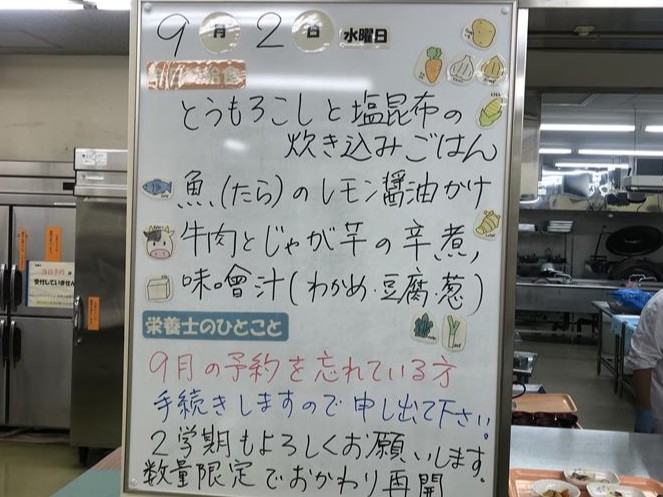 9月2日 水曜日
給食
とうもろこしと塩昆布の
炊き込みごはん
魚(たら)のレモン醤油かけ
牛肉とじゃが芋の辛煮
味噌汁(わかめ・豆腐・葱)
栄養士のひとこと
9月の予約を忘れている方
手続きしますので申し出て下さい。
2学期もよろしくお願いします。
数量限定でおかわり再開
受付していません